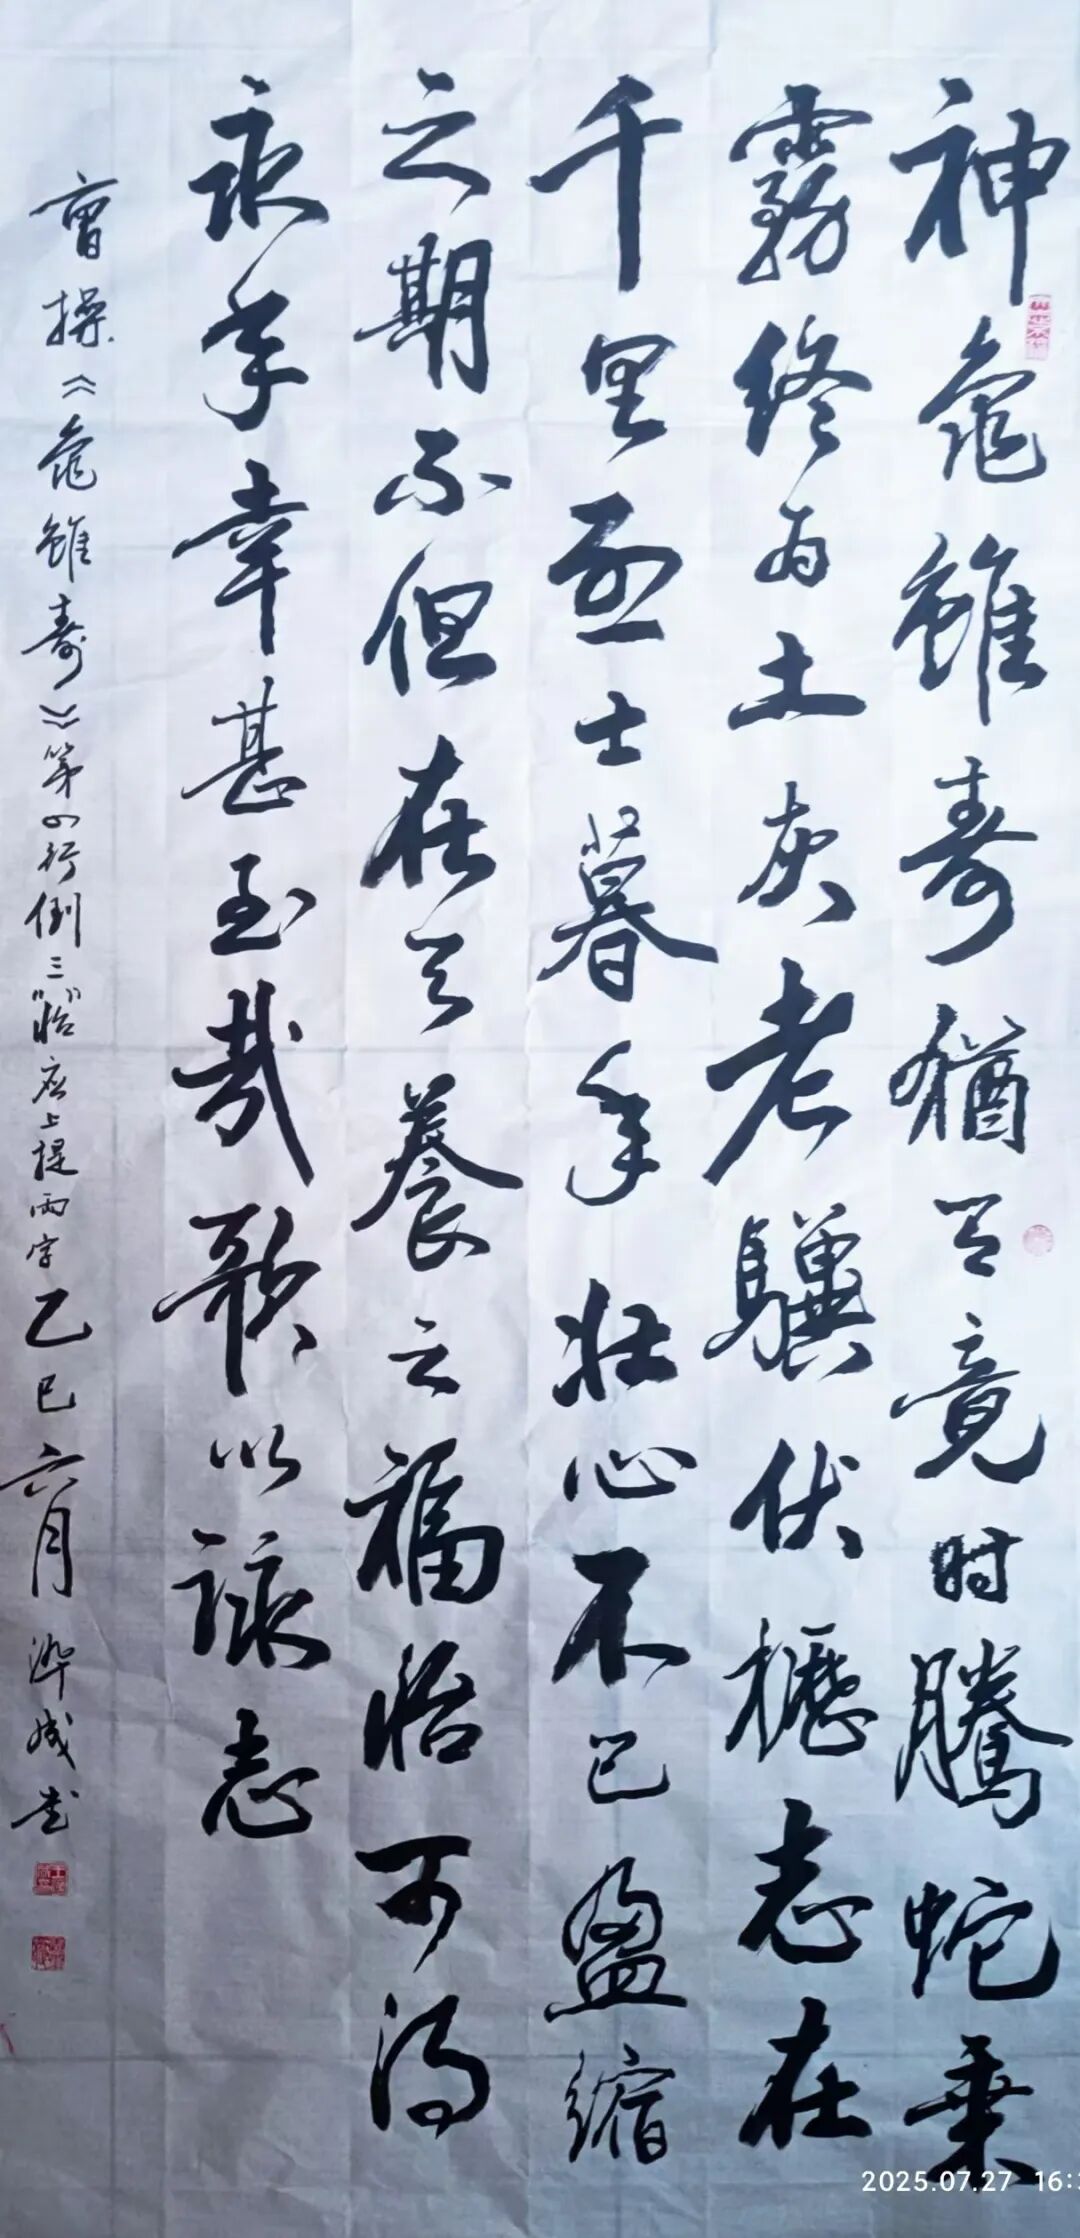 神龟雖寿猶有竟时騰蛇乘
霧终为土灰老驥伏櫪志在
千里烈士暮年壮心不已盈缩
之期不但在天養之福怡可得
永年幸甚至哉歌以詠志
曹操《龟雖寿》第四行倒三"怡"应上提两字乙巳六月 成书
2025.07.27 16:3